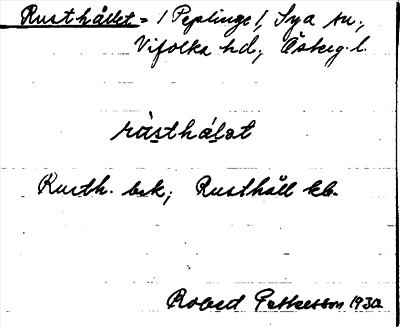 Rusthållet = / Peplinge /, Sya sn.,
Vifolka hd; Österg. l.
ràsthálət
Rusth. bsk; Rusthåll kb.
Robert Pettersson 1930